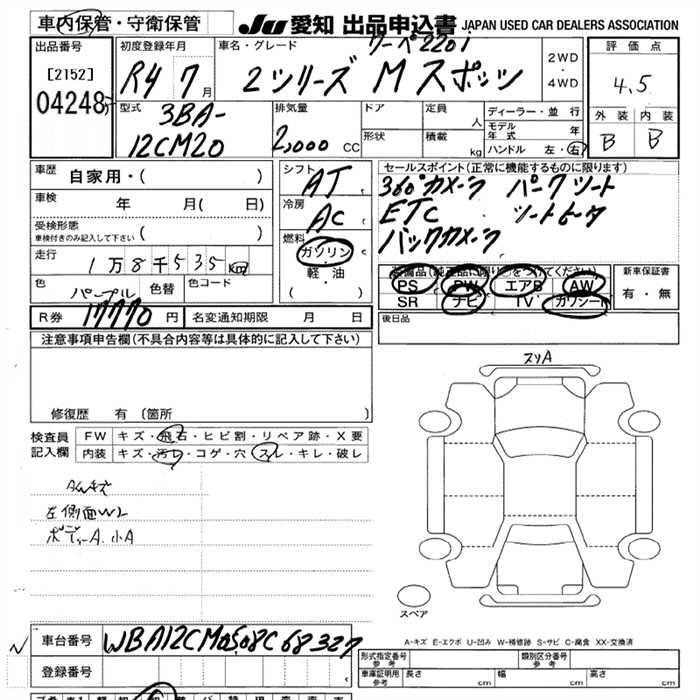 車内保管・守衛保管
JU 愛知 出品申込書 JAPAN USED CAR DEALERS ASSOCIATION
出品番号
[2152]
04248
初度登録年月
R4 7月
車名・グレード
クーペ220i
2シリーズ Mスポーツ
2WD
・
4WD
評価点
4.5
外装 内装
B B
型式
3BA-
12CM20
排気量
2,000 CC
ドア
形状
定員 人
積載 kg
ディーラー・並行
モデル年式 年
ハンドル 左・右
車歴
自家用・( )
車検
年 月( 日)
受検形態
車検付きのみ記入して下さい ( )
走行
1万8千535km
色
パープル
色替
色コード
R券 17770円
名変通知期限 月 日
シフト
AT
冷房
AC
燃料
ガソリン
・
軽・油
( )
セールスポイント(正常に機能するものに限ります)
360°カメラ パークソナー
ETC シートヒータ
バックカメラ
装備品(純正品に限り○をつけてください)
PS PW エアB AW
SR ナビ TV カワシート
新車保証書
有・無
後日品
注意事項申告欄(不具合内容等は具体的に記入して下さい)
修復歴 有 (箇所 )
検査員
記入欄
FW キズ・飛石・ヒビ割・リペア跡・X要
内装 キズ・汚レ・コゲ・穴・スレ・キレ・破レ
AWキズ
左側面W2
ボディーA、小A
スリA
スペア
A-キズ E-エクボ U-凹み W-補修跡 S-サビ C-腐食 XX-交換済
車台番号 WBA12CM0508C68327
登録番号
型式指定番号
参考
類別区分番号
参考
車庫証明用
参考
長さ cm
幅 cm
高さ cm